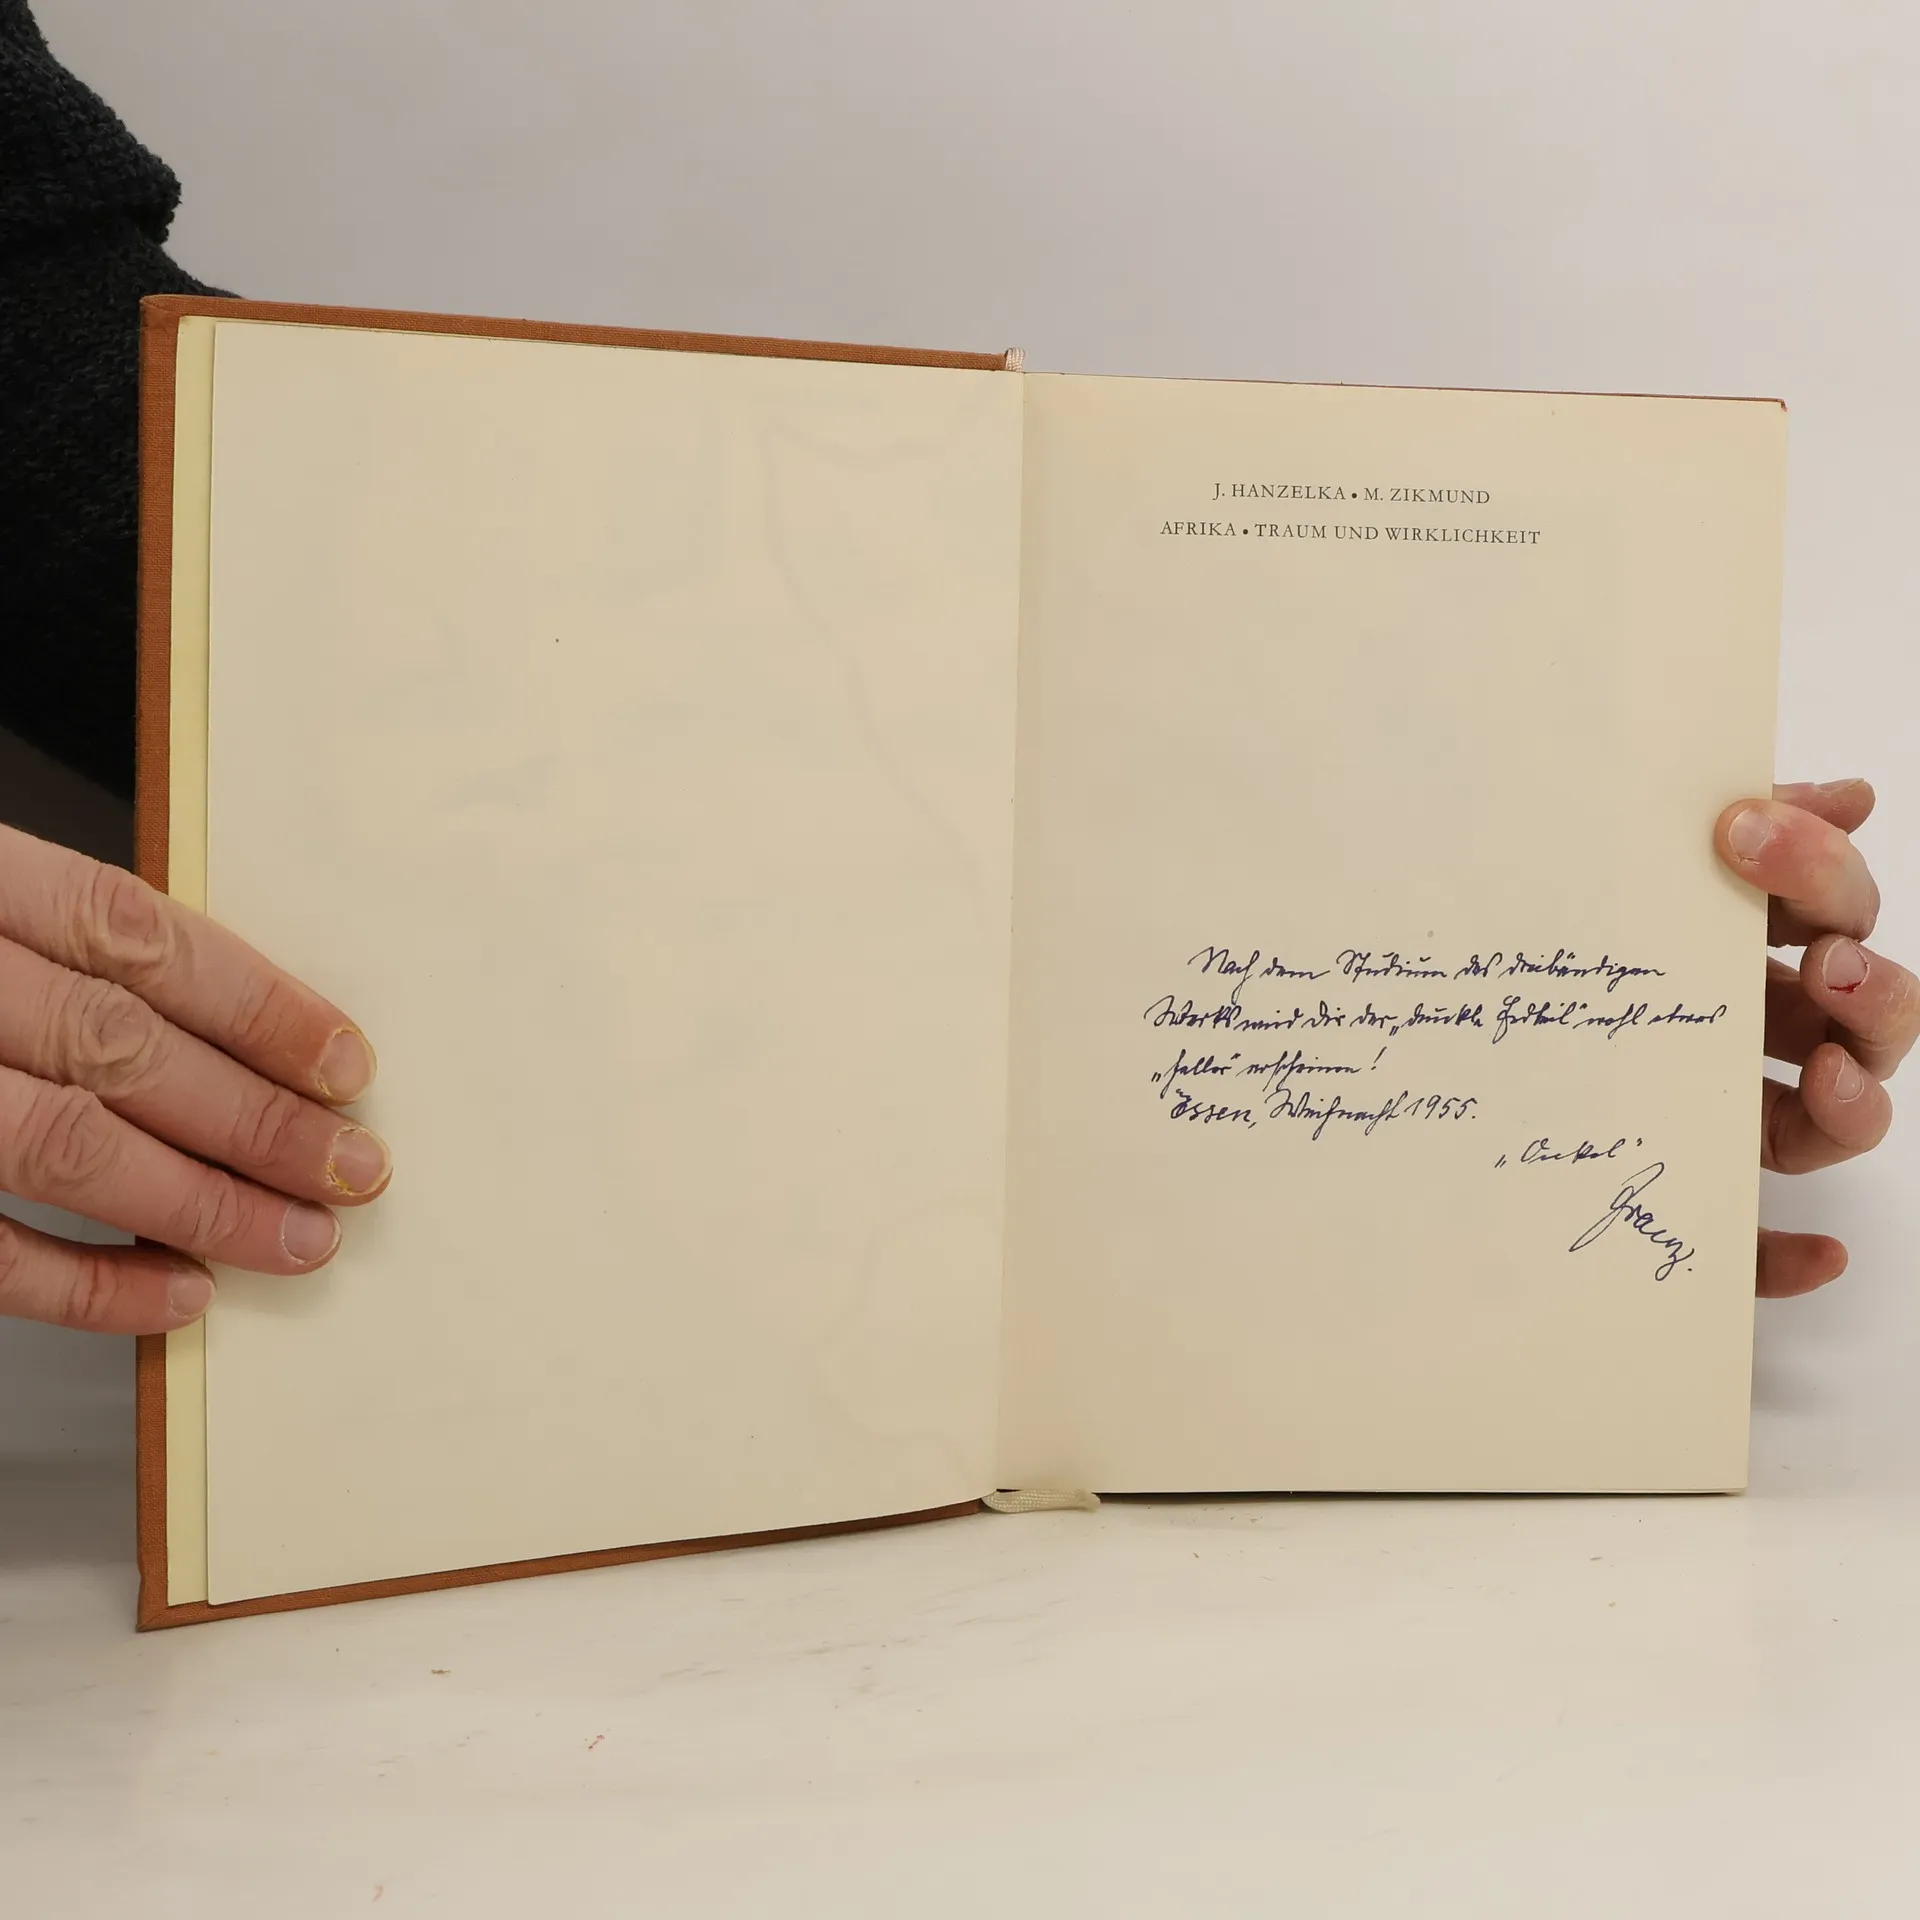 J. HANZELKA • M. ZIKMUND
AFRIKA • TRAUM UND WIRKLICHKEIT
Nach dem Studium des dreibändigen
Werks wird Dir der „dunkle Erdteil" wohl etwas
„heller" erscheinen!
Essen, Weihnacht 1955.
„Onkel"
Franz.